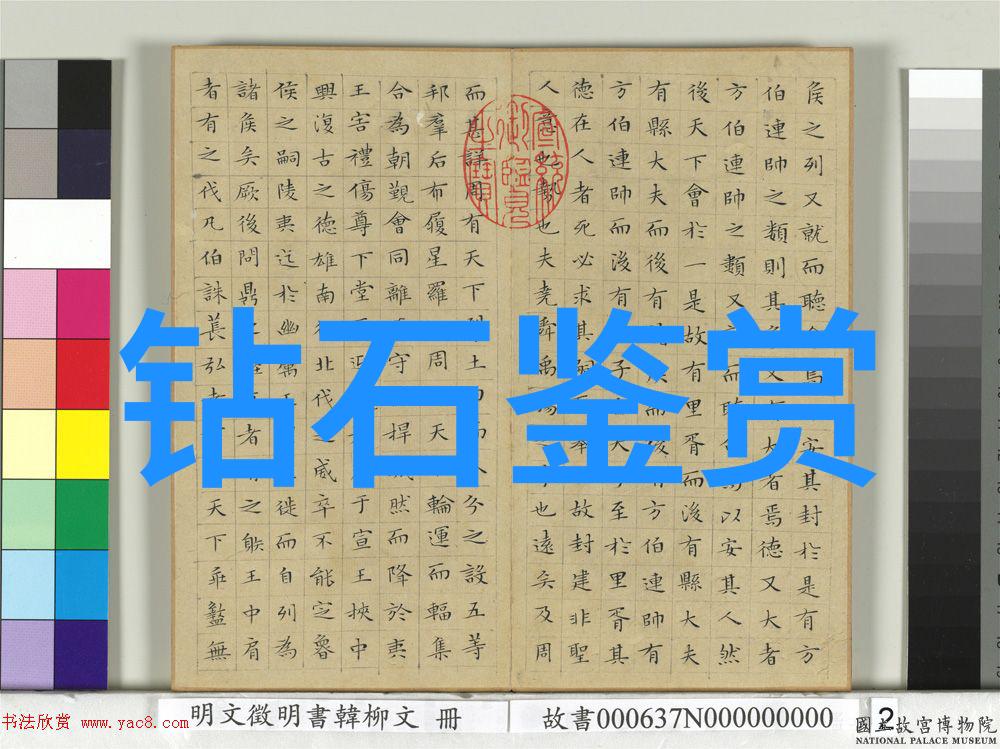 钻石鉴赏
矦之列又就而聽焉安其封於是有方
伯連帥之類則其又大者焉德又大者
方伯連帥之類又而聽以安其人然
後天下會於一是故有里胥而後有縣大夫
有縣大夫而後有而後有方伯連帥有
方伯連帥而後有子至於里胥其
德在人者死必求其嗣故封建非聖
人意也勢也夫堯舜禹也遠矣及周
而甚詳周有天下土分之設五等
邦羣后布履星羅周天輪運而輻集
合為朝覲會同離守捍然而降於夷
王害禮傷尊下堂于宣王挾中
興復古之德雄南北伐之威卒不能定魯
矦之嗣陵夷迄於幽厲徙而自列為
諸矦矣厥後問鼎之者之躲王中肩
者有之伐凡伯誅萇弘天下乖盭無
明文徵明書韓柳文 冊
故書000637N000000000
2
國立故宮博物院
NATIONAL PALACE MUSEUM
书法欣赏 www.yac8.com